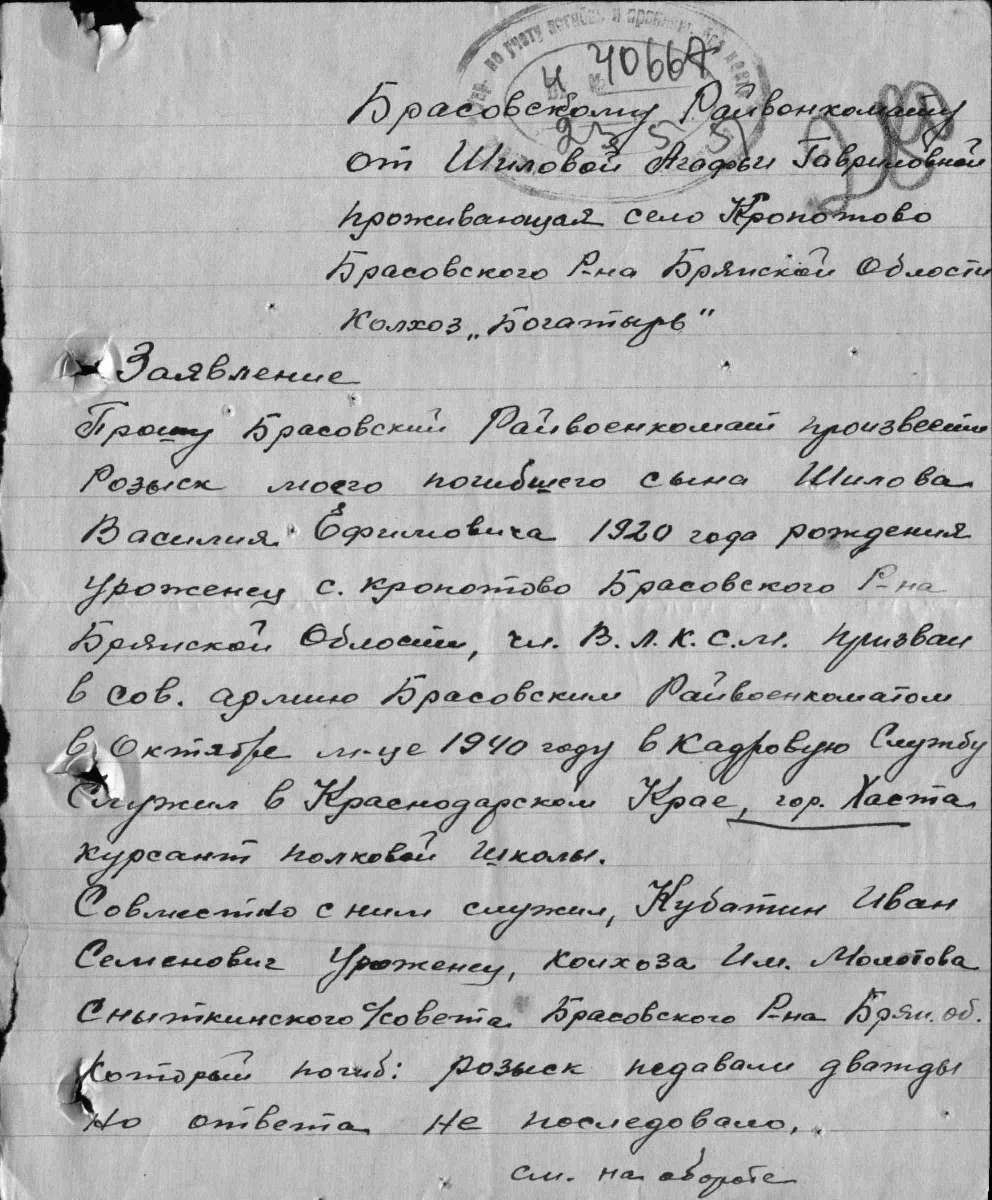 по учету погибш и пропавш
Вх. №
Ч 40667
2355
Брасовскому Райвонкомату
от Шиловой Агафьи Гавриловной
проживающая село Кропотово
Брасовского Р-на Брянской Области
Колхоз „Богатырь"
Заявление
Прошу Брасовский Райвоенкомат произвести
Розыск моего погибшего сына Шилова
Василия Ефимовича 1920 года рождения
уроженец с. Кропотово Брасовского Р-на
Брянской Области, чл. В.Л.К.С.М. призван
в сов. армию Брасовским Райвоенкоматом
в Октябре м-це 1940 году в кадровую Службу
Служил в Краснодарском Крае, гор. Хаста
курсант полковой школы.
Совместно с ним служил, Кубатин Иван
Семенович Уроженец, колхоза Им. Молотова
Сныткинского с/совета Брасовского Р-на Брян. об.
Который погиб: розыск подавали дважды
Но ответа Не последовало.
см. на обороте